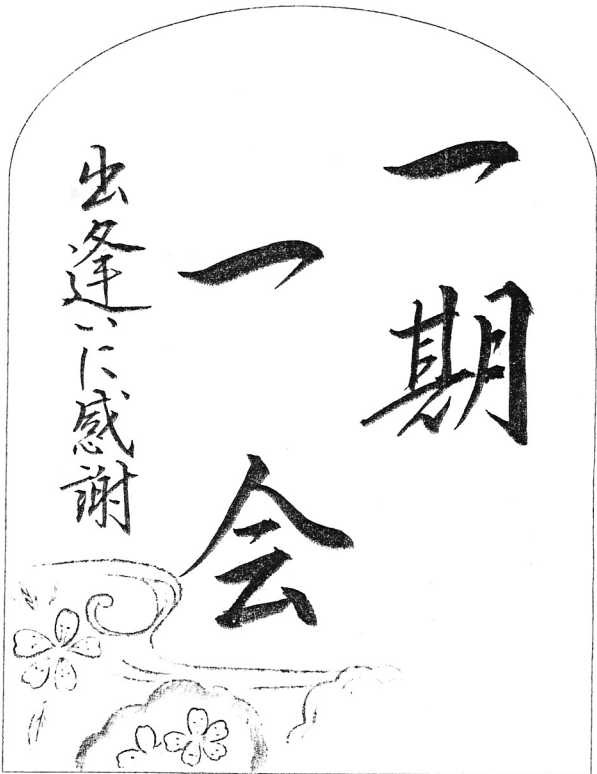 一期
一会
出逢いに感謝